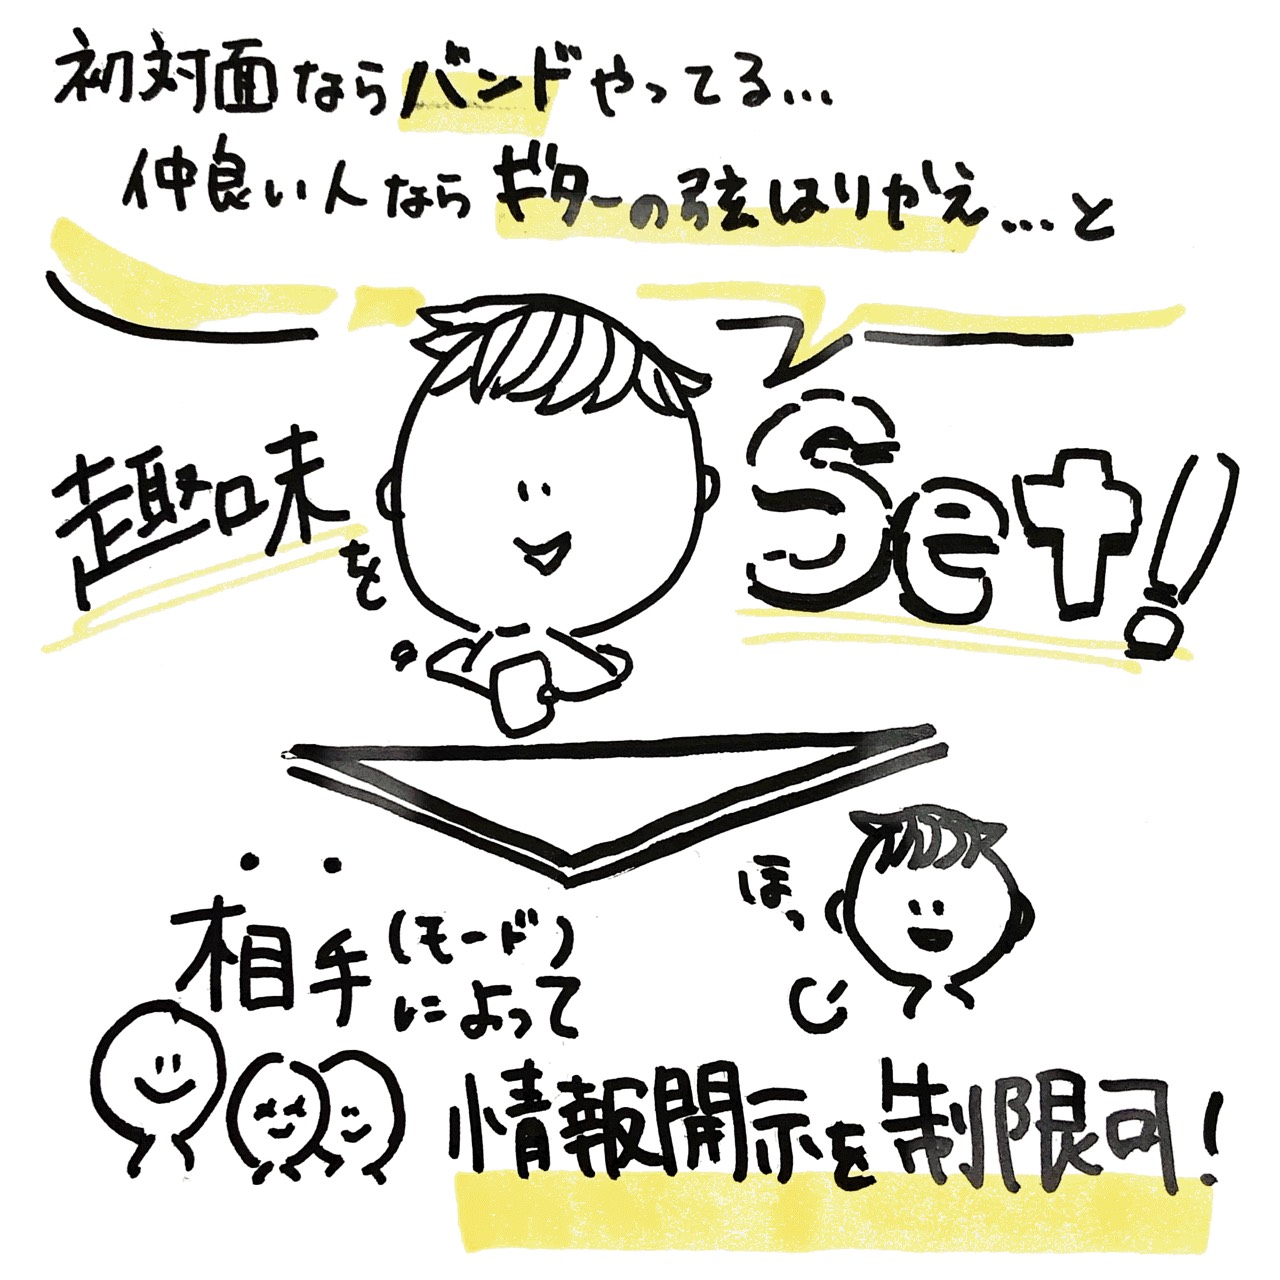 初対面ならバンドやってる...
仲良い人ならギターの弦はりかえ...と
趣味を
Set!
ほっ
相手(モード)
によって
情報開示を制限可!